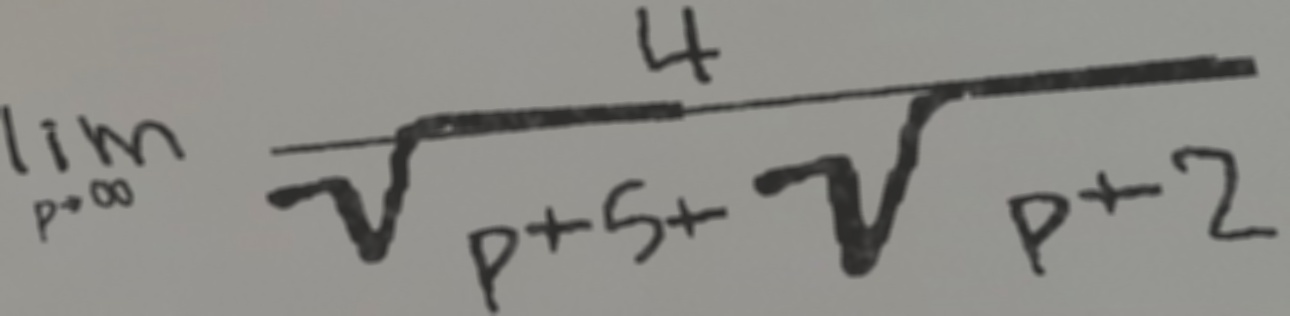 lim p→∞ 4 / √(p+5) + √(p+2)